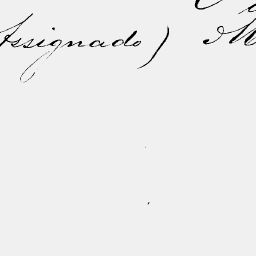 Assignado) M